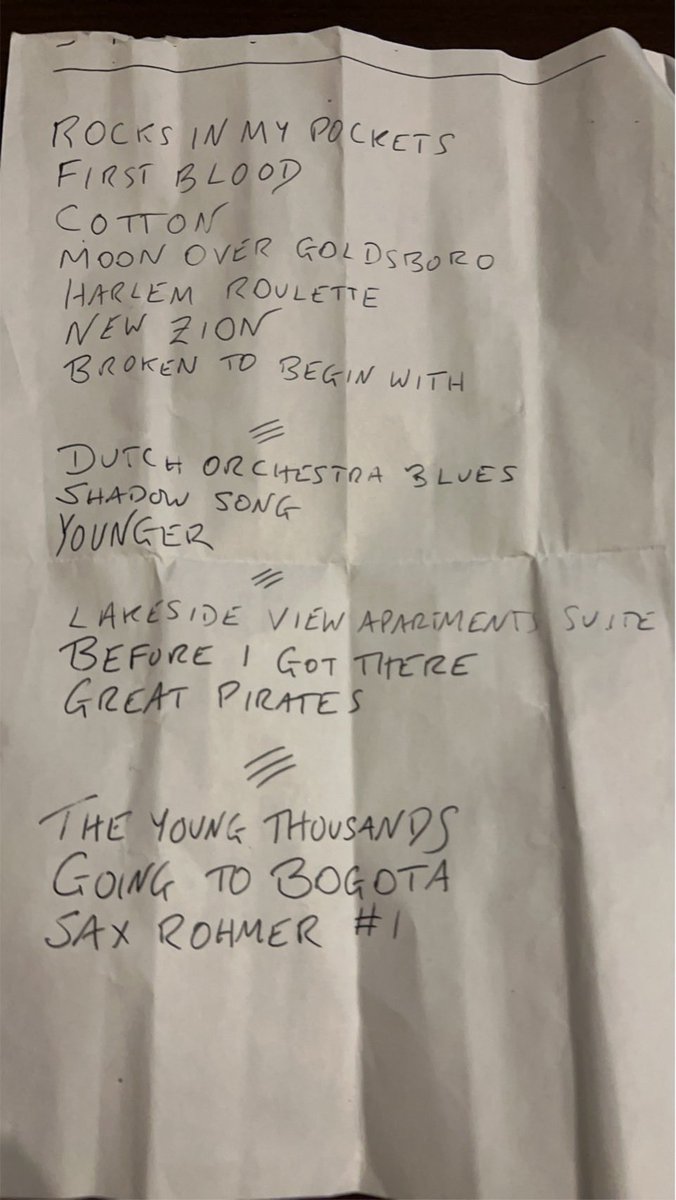 ROCKS IN MY POCKETS
FIRST BLOOD
COTTON
MOON OVER GOLDSBORO
HARLEM ROULETTE
NEW ZION
BROKEN TO BEGIN WITH
DUTCH ORCHESTRA BLUES
SHADOW SONG
YOUNGER
LAKESIDE VIEW APARTMENTS SUITE
BEFORE I GOT THERE
GREAT PIRATES
THE YOUNG THOUSANDS
GOING TO BOGOTA
SAX ROHMER #1